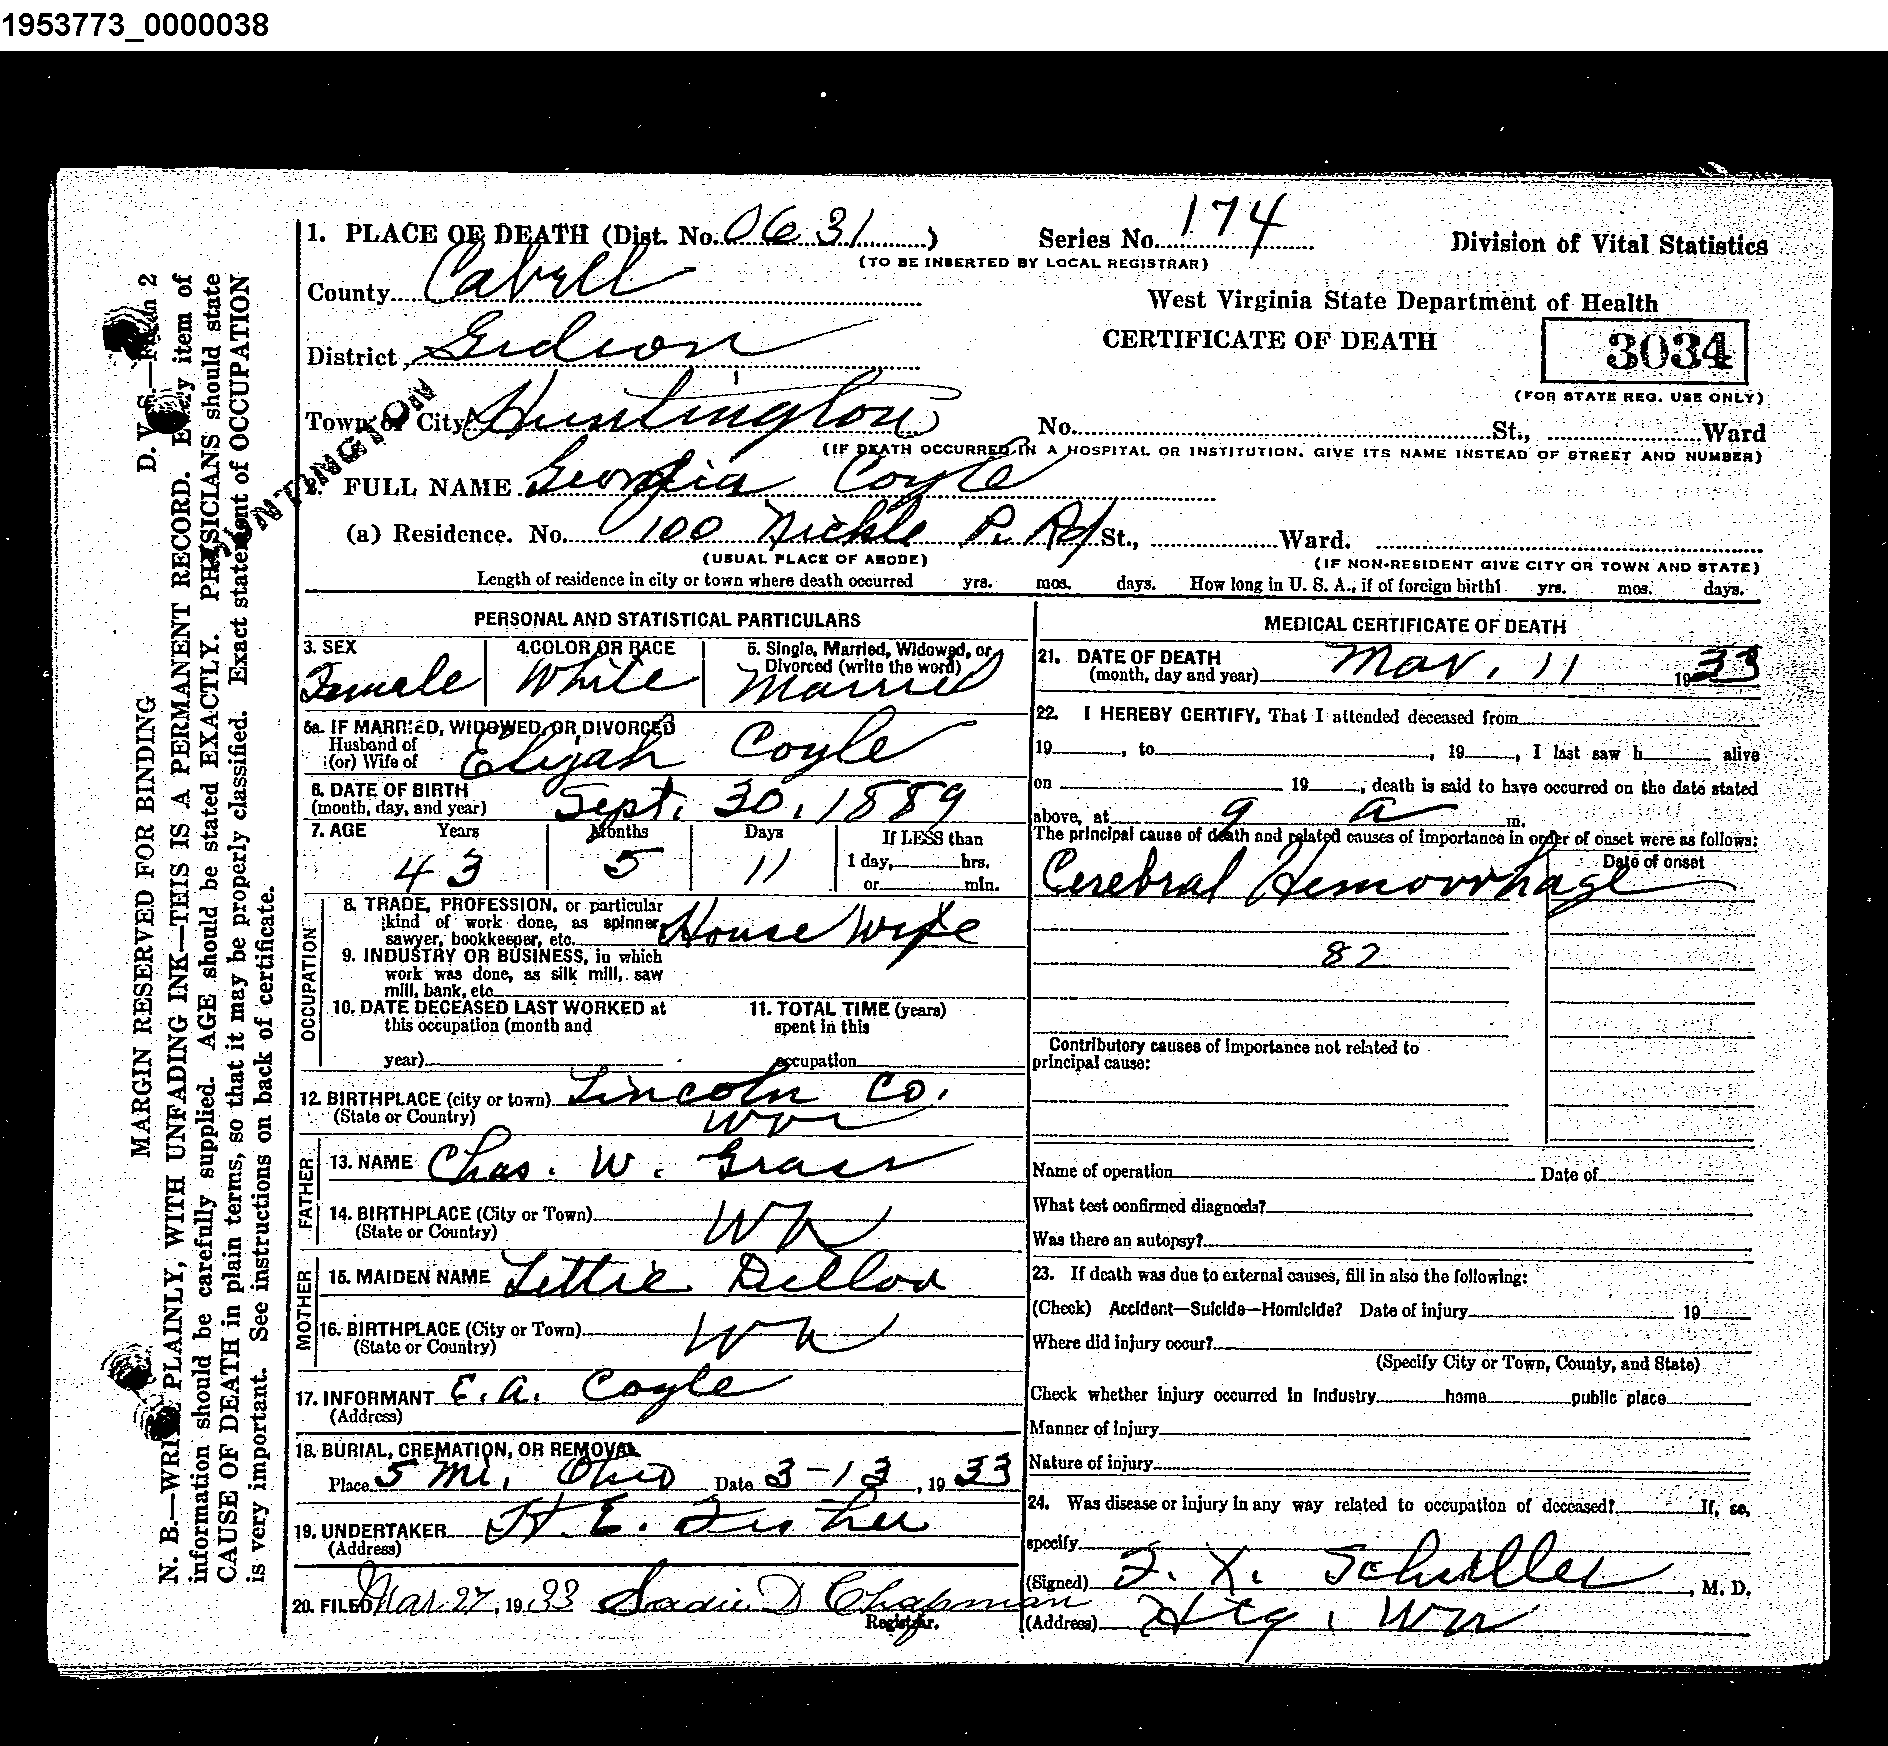 1953773_0000038
1. PLACE OF DEATH (Dist. No. 0631 )
Series No. 174
Division of Vital Statistics
(TO BE INSERTED BY LOCAL REGISTRAR)
County Cabell
West Virginia State Department of Health
CERTIFICATE OF DEATH
3034
(FOR STATE REG. USE ONLY)
District Gideon
Town or City Huntington
No. St., Ward
(IF DEATH OCCURRED IN A HOSPITAL OR INSTITUTION, GIVE ITS NAME INSTEAD OF STREET AND NUMBER)
HUNTINGTON
FULL NAME Georgia Coyle
(a) Residence. No. 100 Nickle P. Rd St., Ward.
(USUAL PLACE OF ABODE)
(IF NON-RESIDENT GIVE CITY OR TOWN AND STATE)
Length of residence in city or town where death occurred yrs. mos. days. How long in U. S. A., if of foreign birth? yrs. mos. days.
PERSONAL AND STATISTICAL PARTICULARS
3. SEX
Female
4. COLOR OR RACE
White
5. Single, Married, Widowed, or
Divorced (write the word)
Married
5a. IF MARRIED, WIDOWED, OR DIVORCED
Husband of
(or) Wife of Elijah Coyle
6. DATE OF BIRTH
(month, day, and year) Sept. 30, 1889
7. AGE Years Months Days If LESS than
43 5 11 1 day, hrs.
or min.
OCCUPATION
8. TRADE, PROFESSION, or particular
kind of work done, as spinner,
sawyer, bookkeeper, etc. House Wife
9. INDUSTRY OR BUSINESS, in which
work was done, as silk mill, saw
mill, bank, etc.
10. DATE DECEASED LAST WORKED at
this occupation (month and
year)
11. TOTAL TIME (years)
spent in this
occupation
12. BIRTHPLACE (city or town) Lincoln Co.
(State or Country) Wva
FATHER
13. NAME Chas. W. Grass
14. BIRTHPLACE (City or Town)
(State or Country) W Va
MOTHER
15. MAIDEN NAME Lettie Dillon
16. BIRTHPLACE (City or Town)
(State or Country) W Va
17. INFORMANT E. A. Coyle
(Address)
18. BURIAL, CREMATION, OR REMOVAL
Place 5 Mi. Ohio Date 3-13, 1933
19. UNDERTAKER H. E. Fisher
(Address)
20. FILED Mar 27, 1933 Sadie D Chapman
Registrar.
MEDICAL CERTIFICATE OF DEATH
21. DATE OF DEATH
(month, day and year) Mar. 11 1933
22. I HEREBY CERTIFY, That I attended deceased from
19 , to , 19 , I last saw h alive
on 19 , death is said to have occurred on the date stated
above, at 9 a m.
The principal cause of death and related causes of importance in order of onset were as follows:
Date of onset
Cerebral Hemorrhage
82
Contributory causes of importance not related to
principal cause:
Name of operation Date of
What test confirmed diagnosis?
Was there an autopsy?
23. If death was due to external causes, fill in also the following:
(Check) Accident—Suicide—Homicide? Date of injury 19
Where did injury occur?
(Specify City or Town, County, and State)
Check whether injury occurred in industry home public place
Manner of injury
Nature of injury
24. Was disease or injury in any way related to occupation of deceased? If, so,
specify
(Signed) F. X. Schuller, M. D.
(Address) Htg, WVa
D. V. S.—Form 2
MARGIN RESERVED FOR BINDING
N. B.—WRITE PLAINLY, WITH UNFADING INK—THIS IS A PERMANENT RECORD. Every item of
information should be carefully supplied. AGE should be stated EXACTLY. PHYSICIANS should state
CAUSE OF DEATH in plain terms, so that it may be properly classified. Exact statement of OCCUPATION
is very important. See instructions on back of certificate.